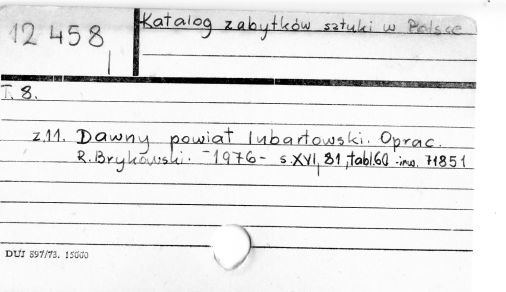 12 458
I
Katalog zabytków sztuki w Polsce
T. 8.
z.11. Dawny powiat lubartowski. Oprac.
R. Brykowski. - 1976 - s. XVI, 81, tabl.60 - inw. 71851
DUJ 897/78. 15000